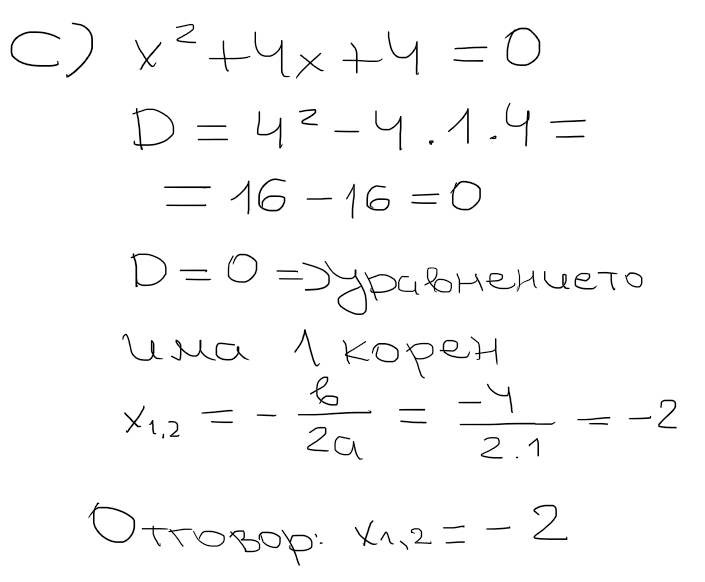 C) x² + 4x + 4 = 0
D = 4² - 4 . 1 . 4 =
= 16 - 16 = 0
D = 0 => уравнението
има 1 корен
x₁,₂ = - в/2a = -4/2.1 = -2
Отговор: x₁,₂ = - 2